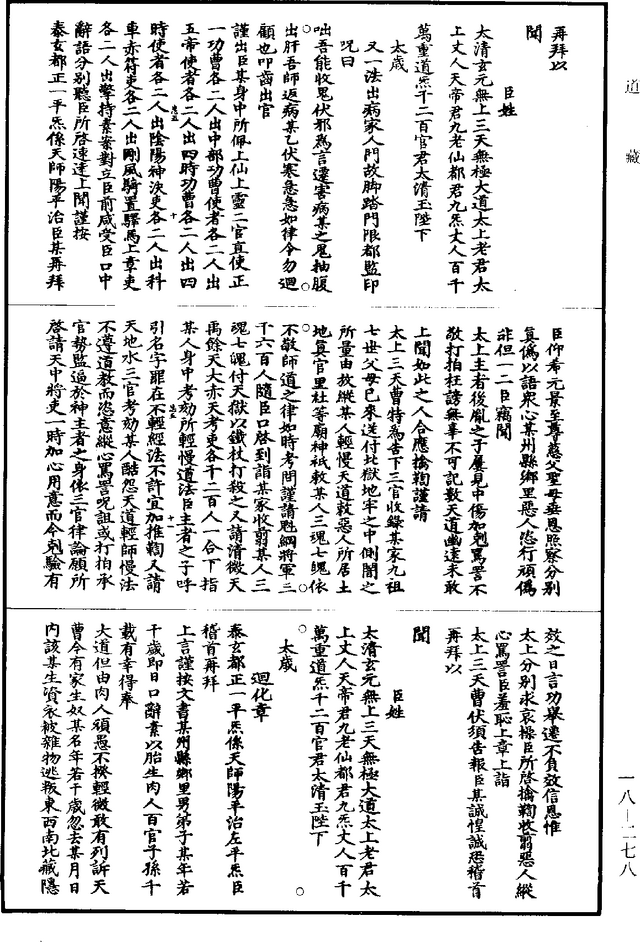 道藏
再拜以
聞
臣姓
太清玄元無上三天無極大道太上老君太
上丈人天帝君九老仙都君九炁丈人百千
萬重道炁千二百官君太清玉陛下
太歲
又一法出病家人門故脚踏門限都監印
咒曰
咄吾能收鬼伏邪為言還害病某之鬼抽腹
出肝吾師返病某乙伏寒急急如律令勿迴
顧也叩齒出官
謹出臣某身中所佩上仙上靈二官直使正
一功曹各二人出中部功曹使者各二人出
五帝使者各二人出四時功曹各二人出四
時使者各二人出陰陽神決吏各二人出科
車赤符吏各二人出剛風騎置驛馬上章吏
各二人出擎持素案對立臣前咸受臣口中
辭語分別聽臣所啓速達上聞謹按
泰玄都正一平炁係天師陽平治臣某再拜
臣仰希元景至尊慈父聖母垂恩照察分別
真偽以語衆心某州縣鄉里惡人恣行頑偽
非但一二臣竊聞
太上主者後胤之子屢見中傷加剋罵詈不
敬打拍枉謗無辜不可記數天道幽遠未敢
上聞如此之人合應擒鞫謹請
太上三天曹特為告下三官收錄某家九祖
七世父母已來送付北獄地牢之中側閣之
所量由故縱某人輕慢天道敕惡人所居土
地真官里社等廟神祇敕某人三魂七魄依
不敬師道之律如時考問謹請魁綱將軍三
千六百人隨臣口啓到詣某家收翦某人三
魂七魄付天獄以鐵杖打殺之又請清微天
禹餘天大赤天考吏各千二百人一合下指
某人身中考劾所輕慢道法臣主者之子呼
引名字罪在不輕經法不許宜加推鞫又請
天地水三官考劾某人酷怨天道輕師慢法
不遵道教而恣意縱心罵詈呪詛或打拍承
官勢監逼於神主者之身依三官律論願所
啓請天中將吏一時加心用意而令剋驗有
效之日言功舉遷不負效信恩惟
太上分別求哀操臣所啓擒鞫收翦惡人縱
心罵詈臣羞恥上章上詣
太上三天曹伏須告報臣某誠惶誠恐稽首
再拜以
聞
臣姓
太清玄元無上三天無極大道太上老君太
上丈人天帝君九老仙都君九炁丈人百千
萬重道炁千二百官君太清玉陛下
太歲
迴化章
泰玄都正一平炁係天師陽平治左平炁臣
稽首再拜
上言謹按文書某州縣鄉里男弟子某年若
干歲即日口辭素以胎生肉人百官子孫千
載有幸得奉
大道但由肉人頑愚不揆輕微敢有列訴天
曹今有家生奴某名年若干歲忽去某月日
內該某生資衣被雜物逃叛東西南北藏隱
一八—二七八